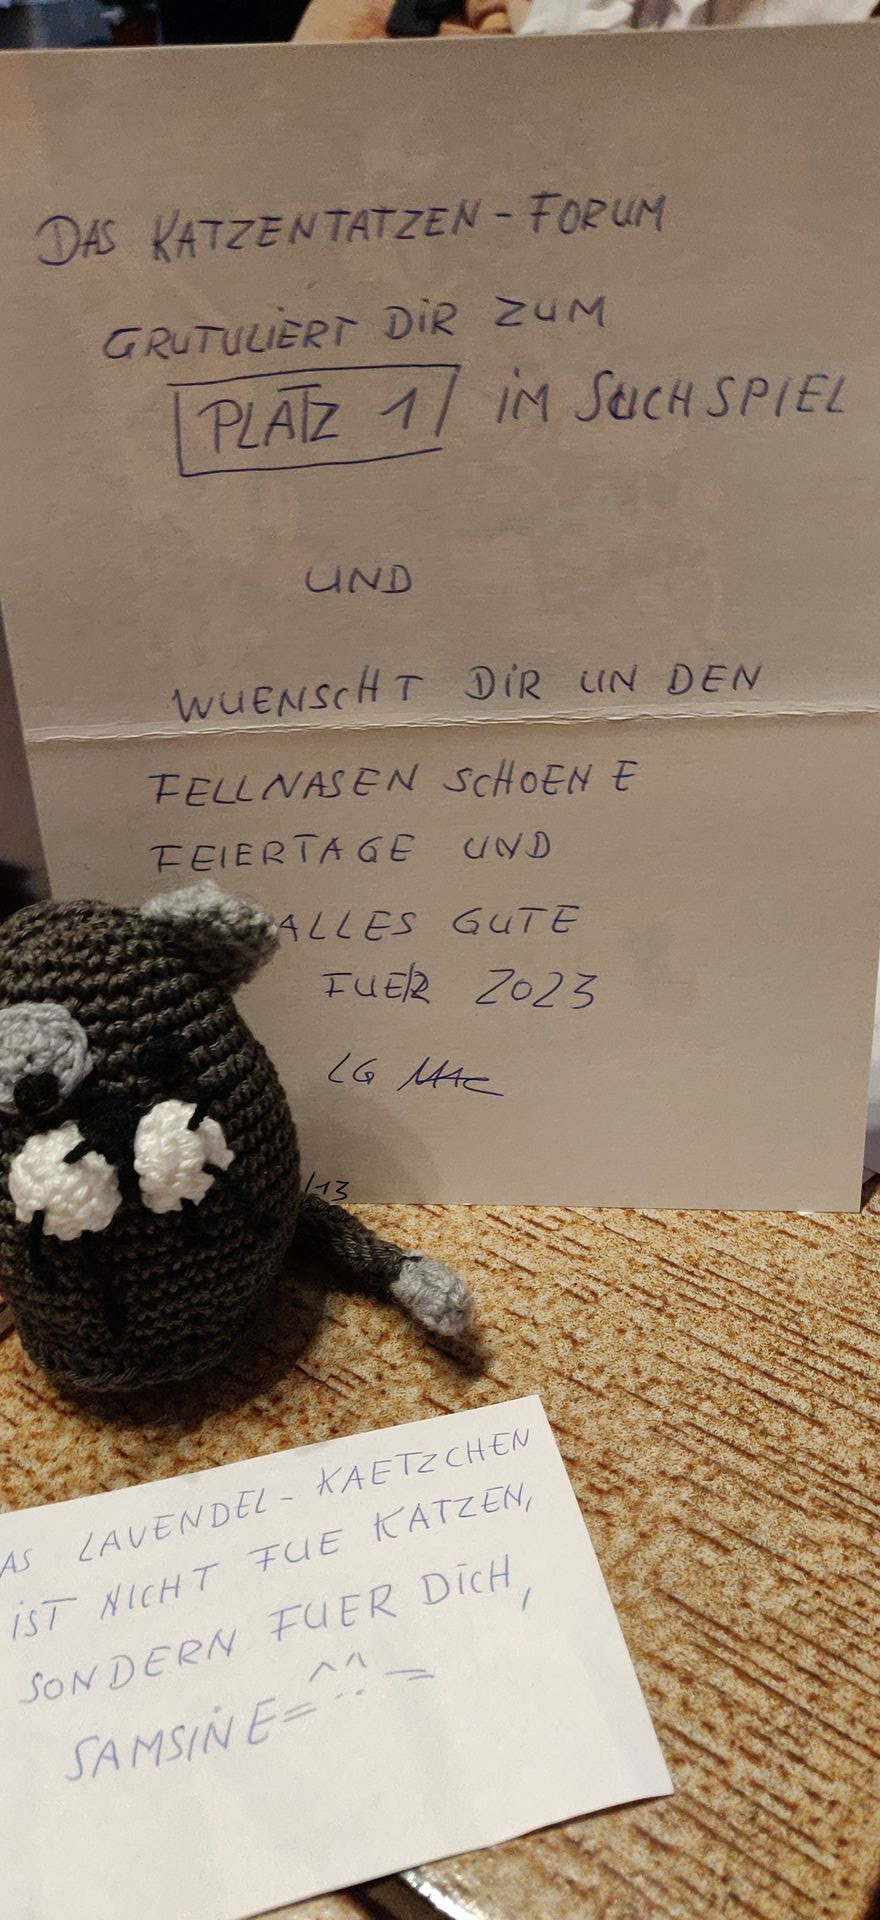 DAS KATZENTATZEN - FORUM
GRUTULIERT DIR ZUM
PLATZ 1 IM SUCHSPIEL
UND
WUENSCHT DIR UN DEN
FELLNASEN SCHOENE
FEIERTAGE UND
ALLES GUTE
FUER 2023
LG MAC
/13
AS LAVENDEL - KAETZCHEN
IST NICHT FUE KATZEN,
SONDERN FUER DICH,
SAMSINE=^..^=